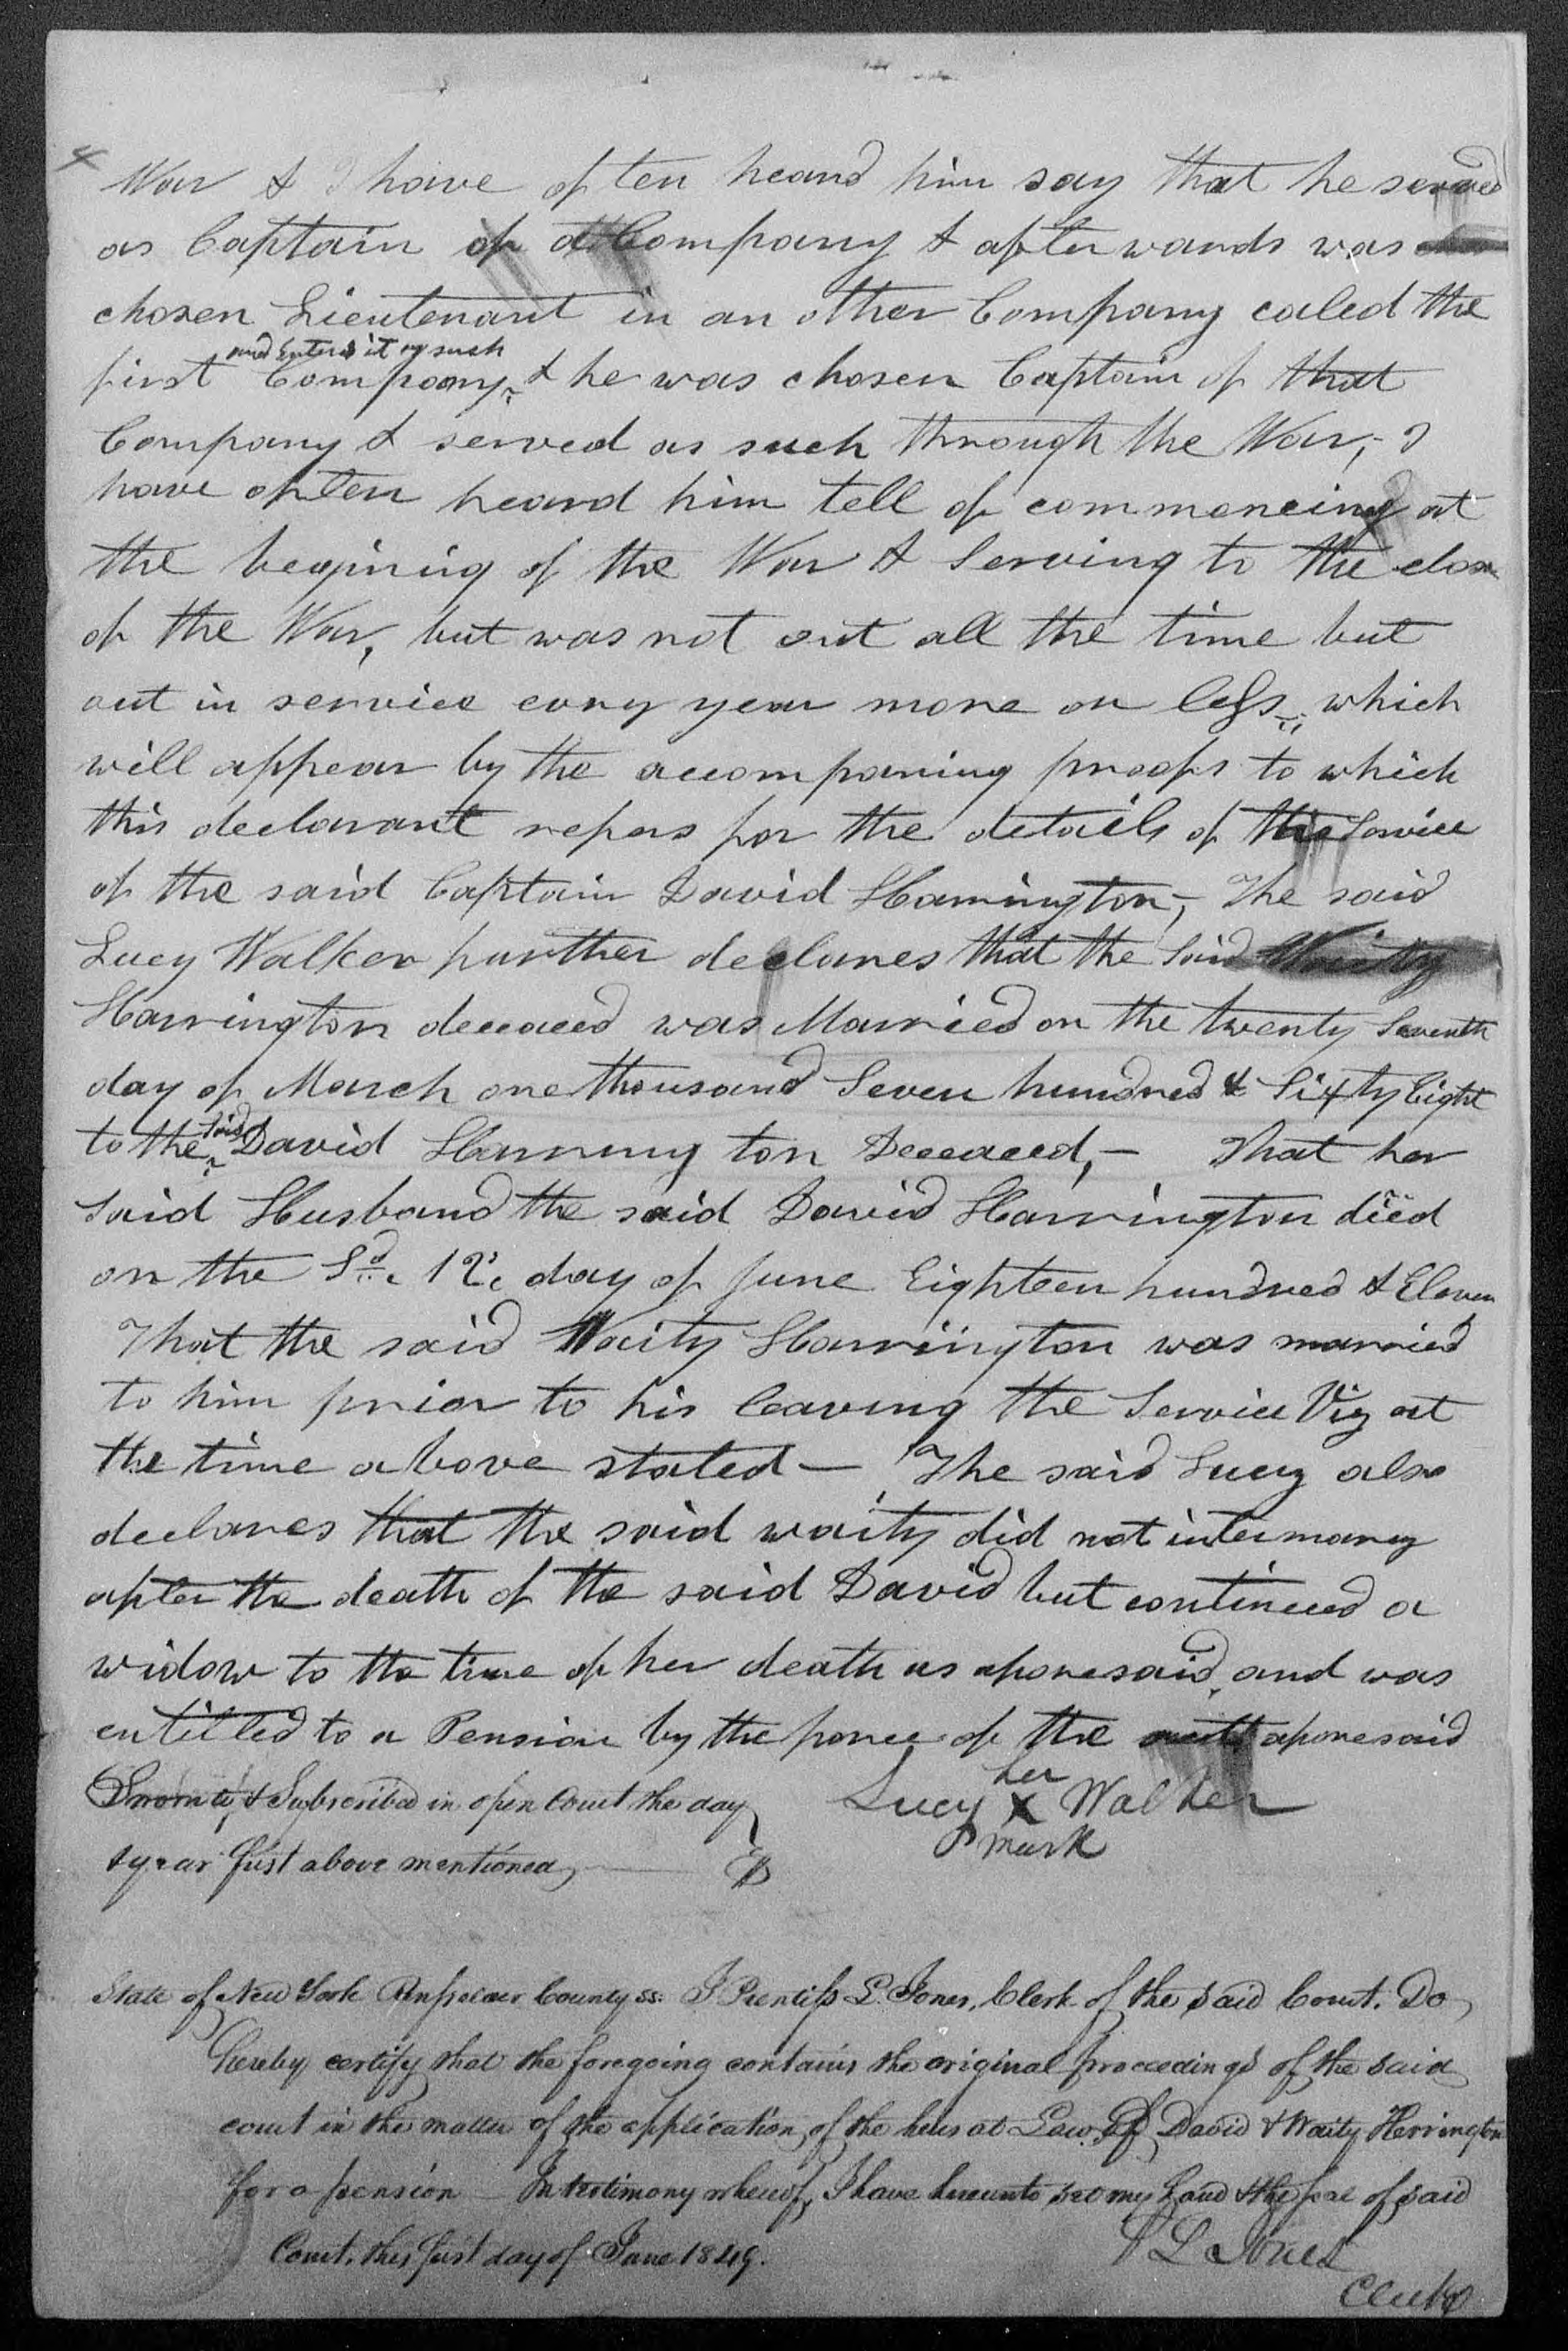 War & I have often heard him say that he served
as Captain of a Company & afterwards was
chosen Lieutenant in an other Company caled the
and entered it as such
first Company & he was chosen Captain of that
Company & served as such through the War, - I
have often heard him tell of commencing at
the begining of the War & Serving to the close
of the War, but was not out all the time but
out in service evry year more or less, which
will appear by the accompaning proofs to which
this declarant refers for the details of the Service
of the said Captain David Harrington, - The said
Lucy Walker further declares that the Said Waity
Harrington deceaced was Married on the twenty Seventh
day of March one thousand Seven hundred & Sixty Eight
to the Said David Harrington Deceaced, - That her
Said Husband the said David Harrington died
on the Sd. 12. day of June Eighteen hundred & Eleven
That the said Waity Harrington was married
to him prior to his leaving the Service Viz at
the time above stated — The said Lucy also
declares that the said waity did not intermarry
after the death of the said David but continued a
widow to the time of her death as aforesaid, and was
entitled to a Pension by the force of the aforesaid
Sworn to, & Subscribed in open Court the day
& year first above mentioned,
Lucy her X mark Walker
State of New York Rensselaer County ss. I Prentiss L. Jones, Clerk of the said Court. Do
hereby certify that the foregoing contains the original proceedings of the said
court in the matter of the application of the heirs at Law Of David & Waity Herrington
for a pension In testimony whereof, I have hereunto set my hand & the seal of said
Court, this first day of June 1849.
P L Jones
Clerk